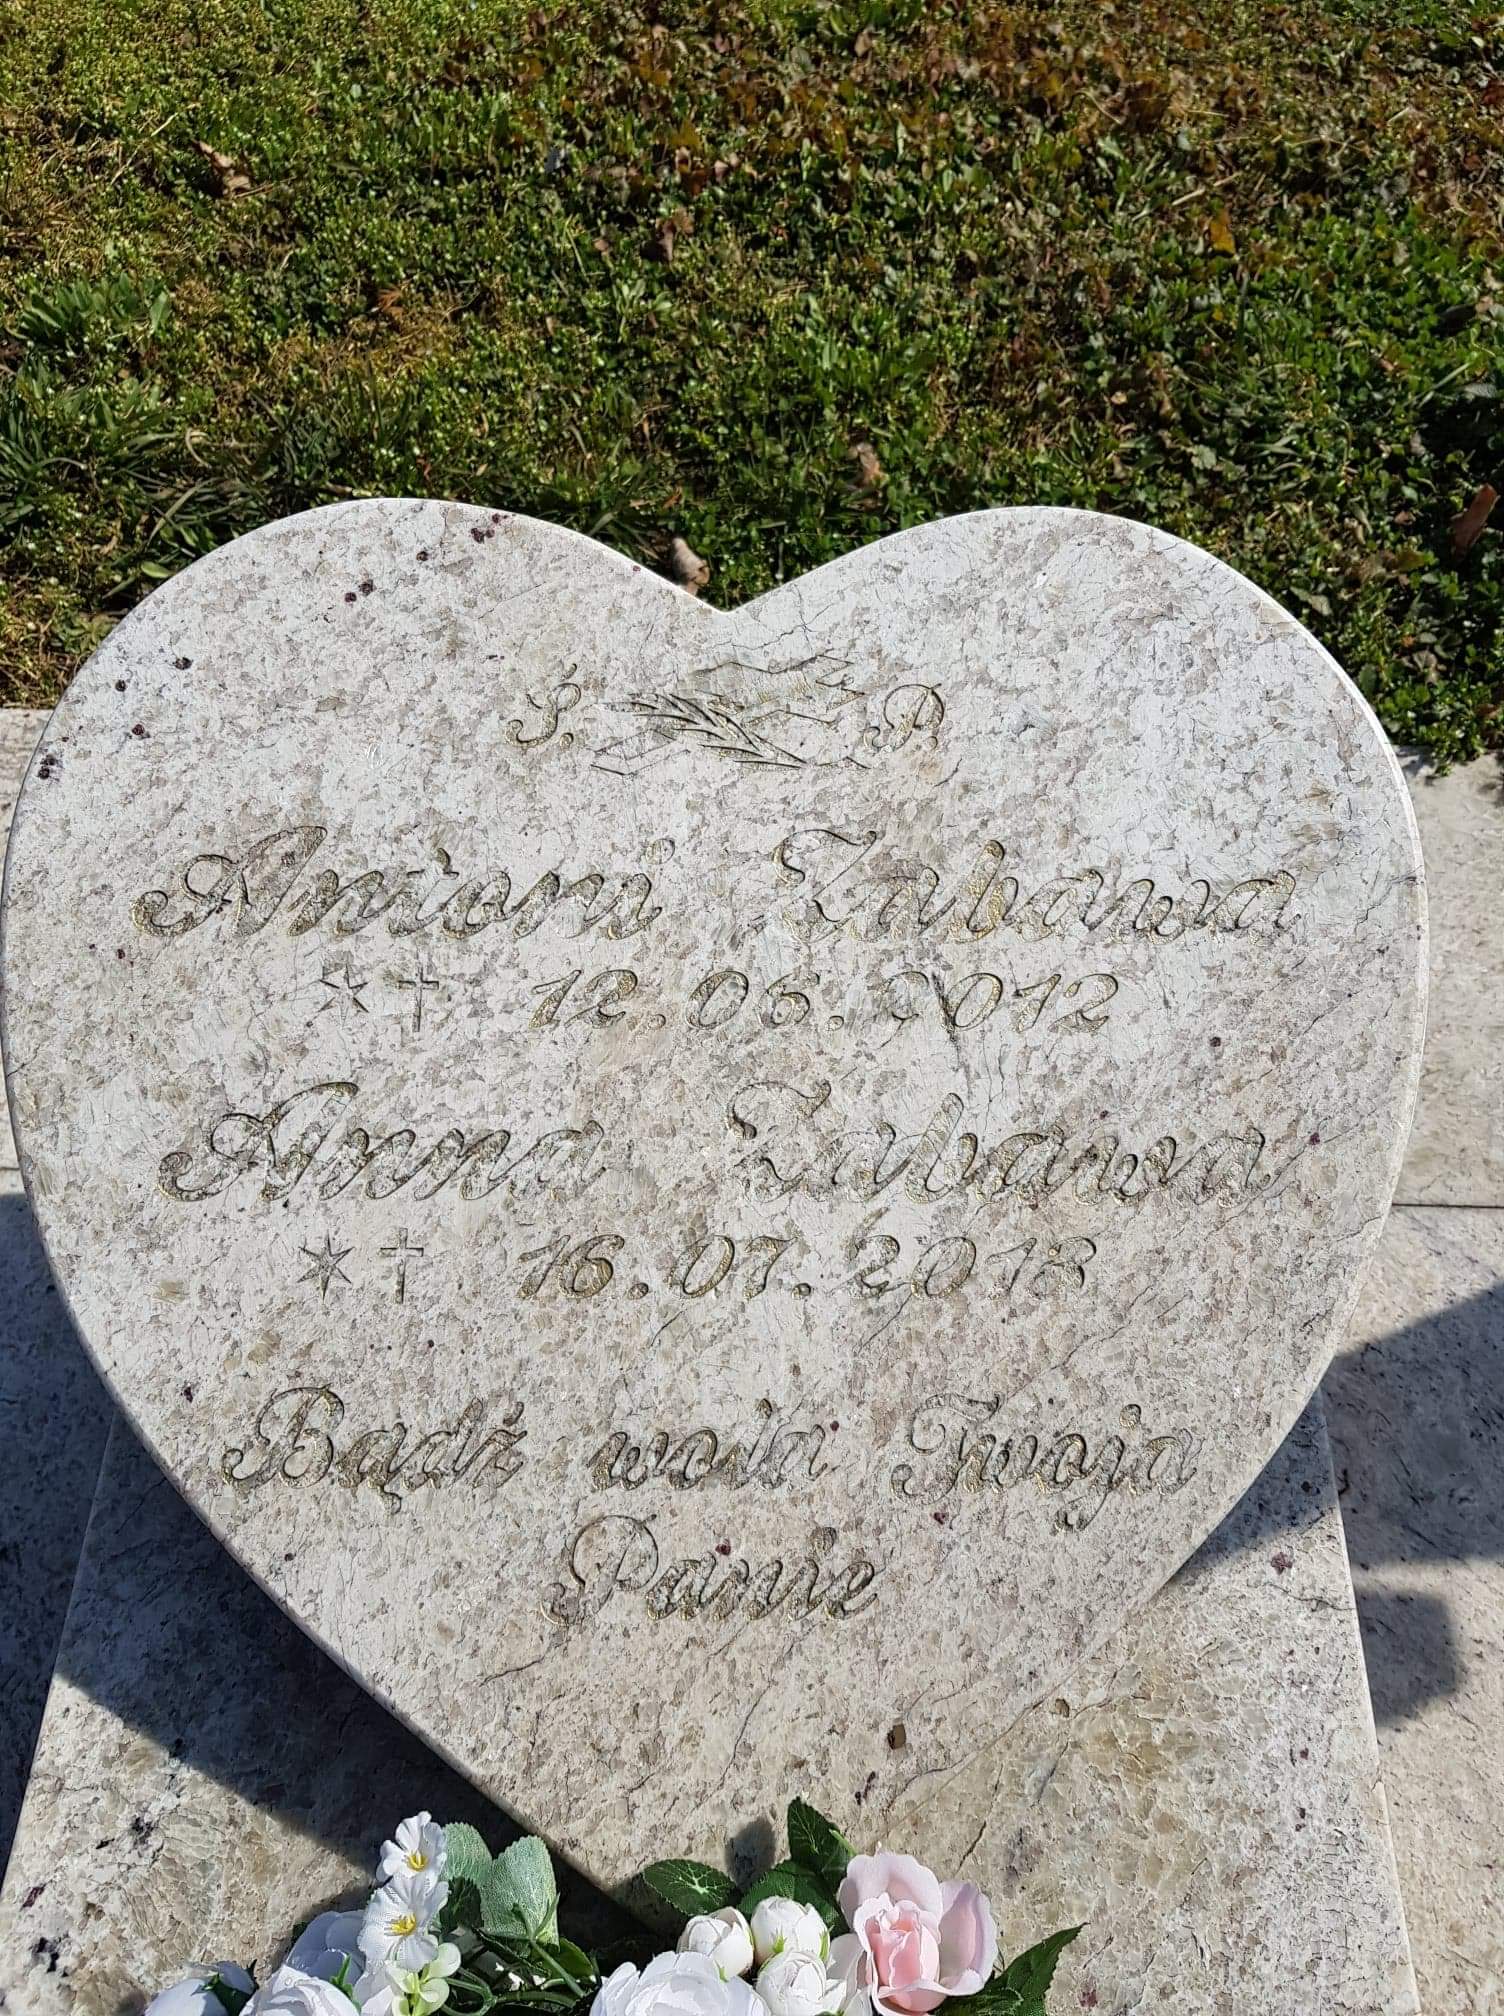 Ś. P.
Antoni Zabawa
12.05.2012
Anna Zabawa
16.07.2013
Bądź wola Twoja
Panie